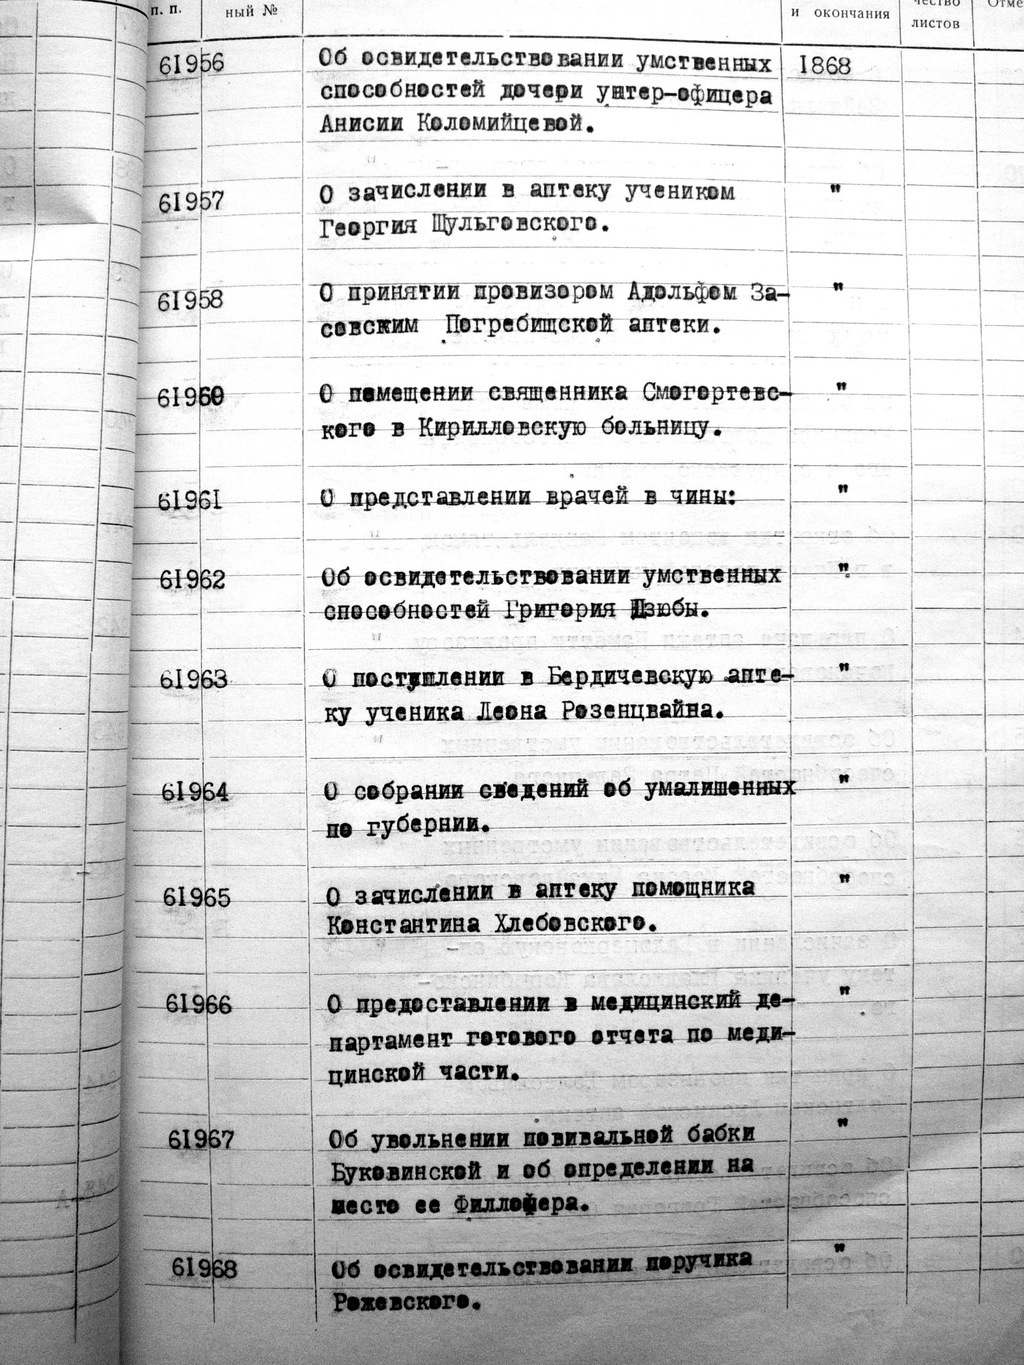 п. п. ный № и окончания чество листов Отме
61956 Об освидетельствовании умственных 1868
способностей дочери унтер-офицера
Анисии Коломийцевой.
61957 О зачислении в аптеку учеником "
Георгия Шульговского.
61958 О принятии провизором Адольфом За- "
совским Погребищской аптеки.
61960 О помещении священника Смогортевс- "
кого в Кирилловскую больницу.
61961 О представлении врачей в чины: "
61962 Об освидетельствовании умственных "
способностей Григория Дзюбы.
61963 О поступлении в Бердичевскую апте- "
ку ученика Леона Розенцвайна.
61964 О собрании сведений об умалишенных "
по губернии.
61965 О зачислении в аптеку помощника "
Константина Хлебовского.
61966 О предоставлении в медицинский де- "
партамент готового отчета по меди-
цинской части.
61967 Об увольнении повивальной бабки "
Буковинской и об определении на
место ее Филлофера.
61968 Об освидетельствовании поручика "
Рожевского.